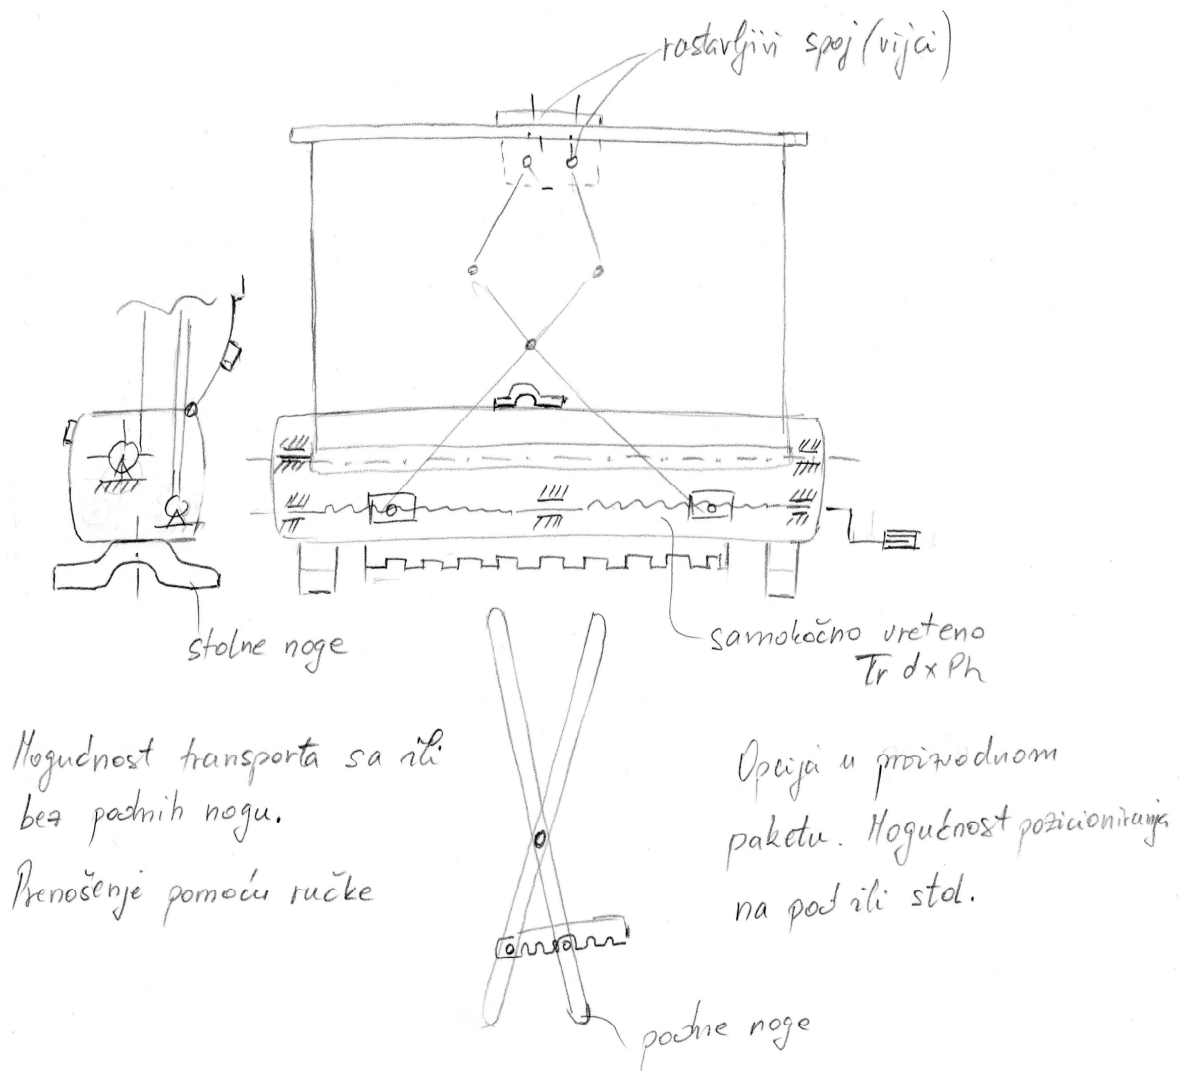 rastavljivi spoj (vijci)
stolne noge
samokočno vreteno
Tr d x Ph
Mogućnost transporta sa ili
bez podnih nogu.
Prenošenje pomoću ručke
Opcija u proizvodnom
paketu. Mogućnost pozicioniranja
na pod ili stol.
podne noge